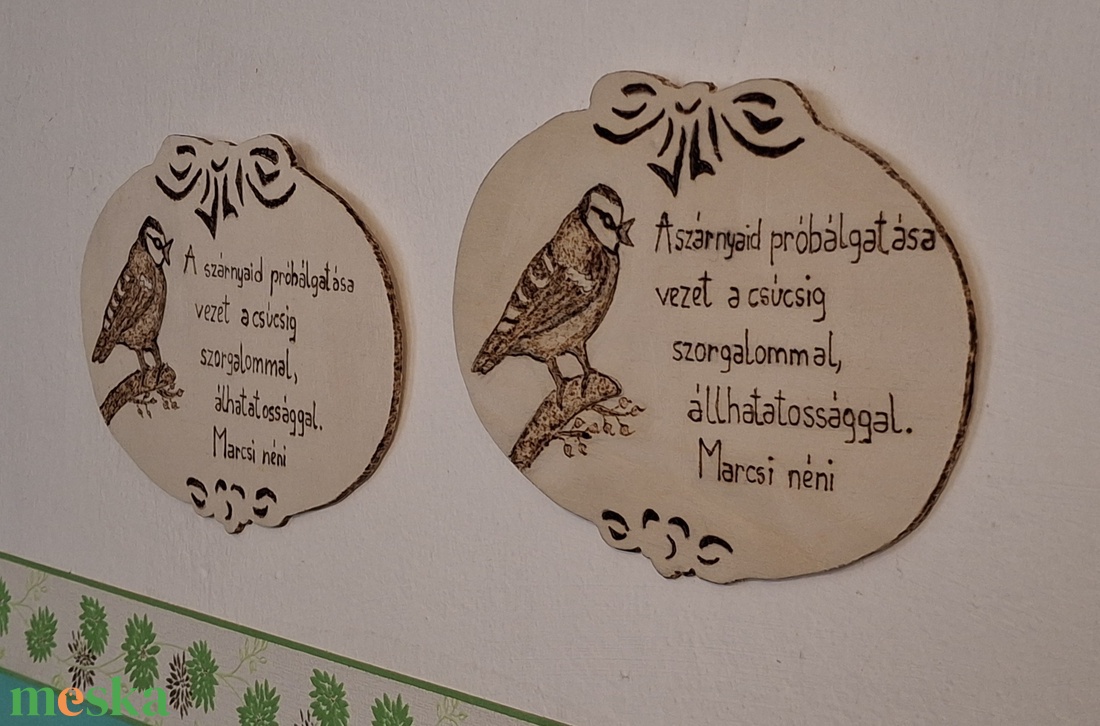 A szárnyaid próbálgatása
vezet a csúcsig
szorgalommal,
álhatatossággal.
Marcsi néni
A szárnyaid próbálgatása
vezet a csúcsig
szorgalommal,
állhatatossággal.
Marcsi néni
meska